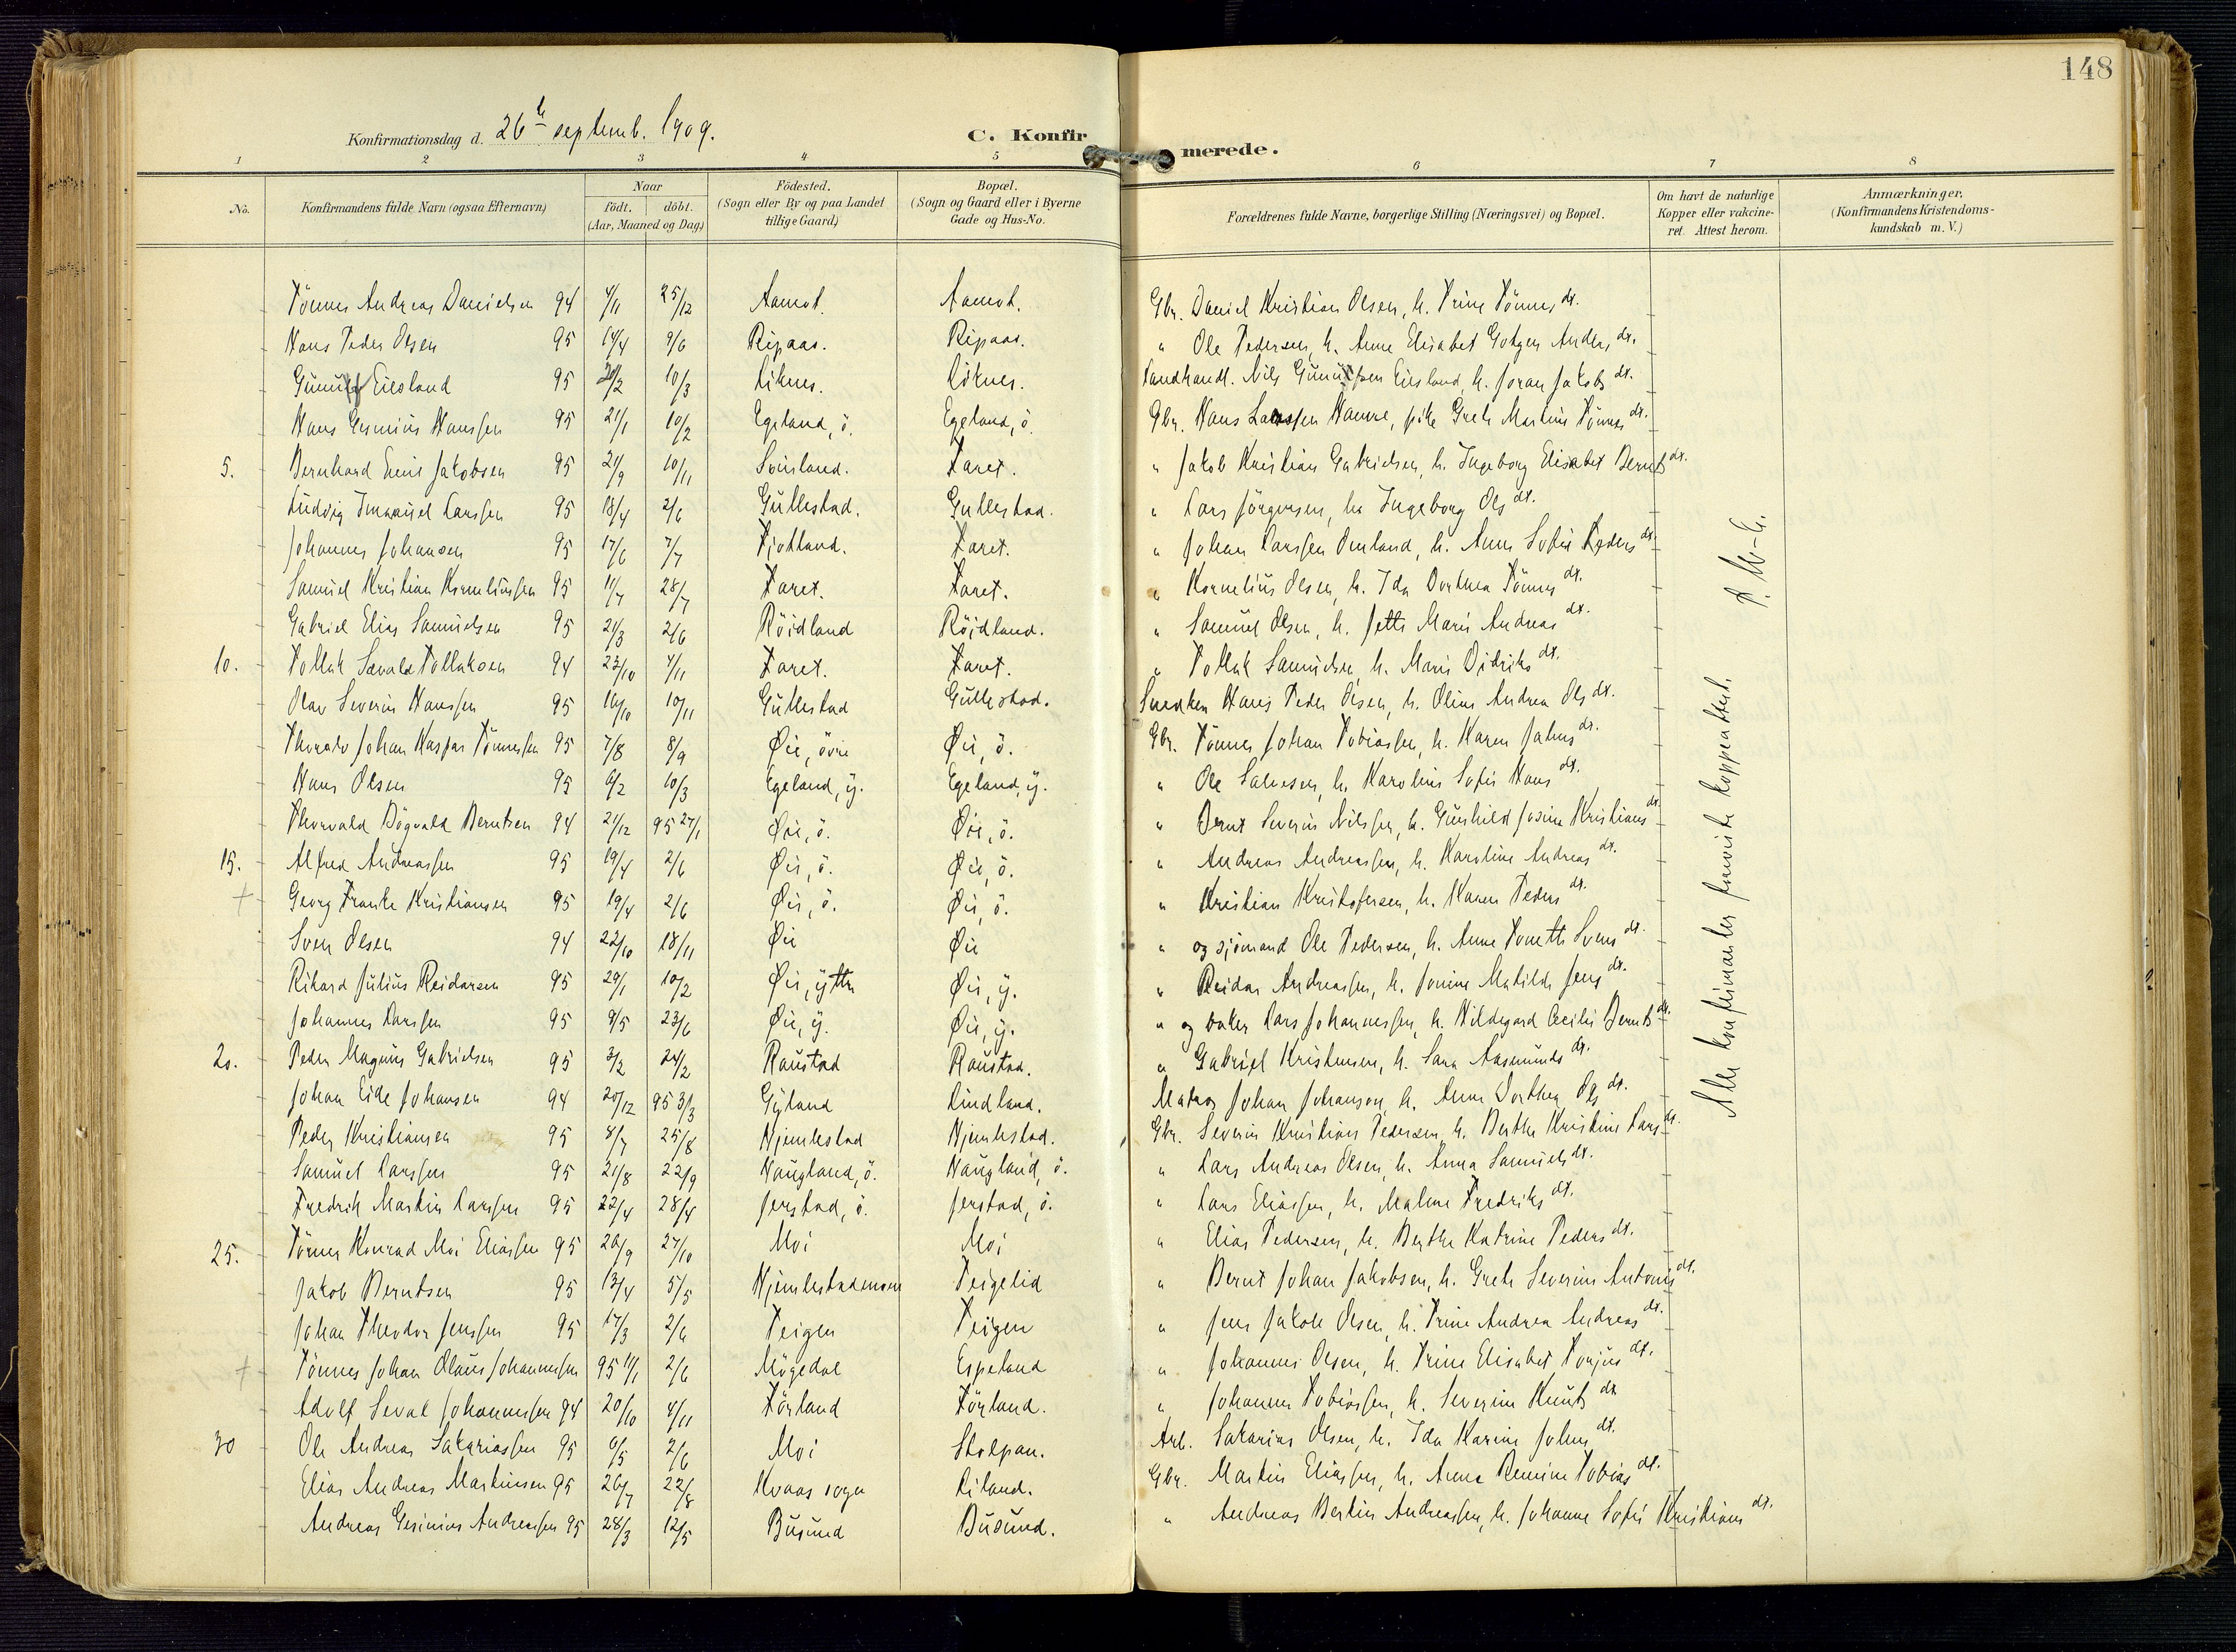 148
Konfirmationsdag d. 26de septemb. 1909.
C. Konfirmerede.
1 2 3 4 5 6 7 8
No. Konfirmandens fulde Navn (ogsaa Efternavn) Naar født. døbt. (Aar, Maaned og Dag) Fødested. (Sogn eller By og paa Landet tillige Gaard) Bopæl. (Sogn og Gaard eller i Byerne Gade og Hus-No. Forældrenes fulde Navne, borgerlige Stilling (Næringsvei) og Bopæl. Om havt de naturlige Kopper eller vakcineret. Attest herom. Anmærkninger. (Konfirmandens Kristendomskundskab m. V.)
Tönnes Andreas Danielsen 94 4/11 25/12 Aamot. Aamot. Gbr. Daniel Kristian Olsen, h. Trine Tönnesdt.
Hans Peder Olsen 95 14/4 9/6 Ripaas. Ripaas. " Ole Pedersen, h. Anne Elisabet Andersdt.
Eiesland 95 /2 10/3 Liknes. Liknes. Landhandl. Nils Eiesland, h. Joran Jakobsdt.
Hans Hanssen 95 21/1 10/2 Egeland, ö. Egeland, ö. Gbr. Hans Larssen pike Grete Martine Tönnesdt.
5. Bernhard Emil Jakobsen 95 21/9 10/11 Svinland. Faret. " Jakob Kristian Gabrielsen, h. Ingeborg Elisabet Berntsdt.
Ludvig Immanuel Larssen 95 18/4 2/6 Gullestad. Gullestad. " Lars Jörgensen, h. Ingeborg Olsdt.
Johannes Johansen 95 17/6 7/7 Fjotland. Faret. " Johan Larssen Omland, h. Anne Sofie Pedersdt.
Samuel Kristian Korneliussen 95 11/7 28/7 Faret. Faret. " Kornelius Olsen, h. Ida Dorthea Tönnesdt.
Gabriel Elias Samuelsen 95 21/3 2/6 Röidland Röidland. " Samuel Olsen, h. Jette Marie Andreasdt.
10. Tollak Sevald Tollaksen 94 23/10 4/11 Faret. Faret. " Tollak Samuelsen, h. Marie Didriksdt.
Olav Severin Hanssen 95 16/10 10/11 Gullestad Gullestad. Snekker Hans Peder Olsen, h. Oline Andrea Olsdt.
Thoralv Johan Kaspar Tönnessen 95 7/8 8/9 Øie, övre Øie, ö. Gbr. Tönnes Johan Tobiassen, h. Karen Jahnsdt.
Hans Olsen 95 6/2 10/3 Egeland, y. Egeland, y. " Ole Salvesen, h. Karoline Sofie Hansdt.
Thorvald Bögvald Berntsen 94 21/12 95 27/1 Øie, ö. Øie, ö. " Bernt Severin Nilssen, h. Gunhild Josine Kristiansdt.
15. Alfred Andreassen 95 19/4 2/6 Øie, ö. Øie, ö. " Andreas Andreassen, h. Karoline Andreasdt.
+ Georg Franke Kristiansen 95 19/4 2/6 Øie, ö. Øie, ö. " Kristian Kristofersen, h. Karen Pedersdt.
Sven Olsen 94 22/10 18/11 Øie Øie " og sjömand Ole Pedersen, h. Anne Tonette Svensdt.
Rikard Julius Reidarsen 95 29/1 10/2 Øie, yttre Øie, y. " Reidar Andreassen, h. Jonine Matilde Jensdt.
Johannes Larssen 95 9/5 23/6 Øie, y. Øie, y. " og baker Lars Johannessen, h. Hildegard Cecilie Berntsdt.
20. Peder Magnus Gabrielsen 95 3/2 24/2 Raustad Raustad. " Gabriel Kristensen, h. Sara Aasmundsdt.
Johan Eide Johansen 94 20/12 95 3/3 Gyland Lindland. Matros Johan Johanson, h. Anne Dorthea Olsdt.
Peder Kristiansen 95 8/7 25/8 Hjemlestad Hjemlestad. Gbr. Severin Kristian Pedersen, h. Berthe Kristine Larsdt.
Samuel Larssen 95 21/8 22/9 Haugland, ö. Haugland, ö. " Lars Andreas Olsen, h. Anna Samuelsdt.
Fredrik Martin Larssen 95 22/4 28/4 Jerstad, ö. Jerstad, ö. " Lars Eliassen, h. Malene Fredriksdt.
25. Tönnes Konrad Moi Eliassen 95 20/9 27/10 Moi Moi " Elias Pedersen, h. Berthe Katrine Pedersdt.
Jakob Berntsen 95 13/4 5/5 Hjemlestadmoen Teigelid " Bernt Johan Jakobsen, h. Grete Severine Antonisdt.
Johan Theodor Jenssen 95 17/3 2/6 Teigen Teigen " Jens Jakob Olsen, h. Trine Andrea Andreasdt.
+ Tönnes Johan Olaus Johannessen 95 11/1 2/6 Mögedal Espeland " Johannes Olsen, h. Trine Elisabet Torjusdt.
Adolf Seval Johannessen 94 20/10 4/11 Förland Förland. " Johannes Tobiassen, h. Severine Knutsdt.
30 Ole Andreas Sakariassen 95 6/5 2/6 Moi Stolpan. Arb. Sakarias Olsen, h. Ida Karine Johnsdt.
Elias Andreas Martinsen 95 26/7 22/8 Kvaas sogn Liland. Gbr. Martin Eliassen, h. Anne Tobiasdt.
Andreas Gesinius Andreassen 95 28/3 12/5 Busund Busund. " Andreas Bertin Andreassen, h. Johanne Sofie Kristiansdt.
Alle konfirmanter foreviste koppeattest.